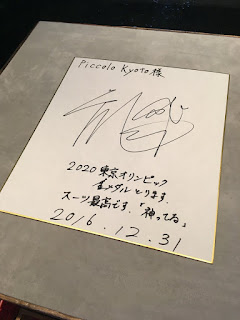 Piccolo Kyoto様
2020東京オリンピック
金メダルとります。
スーツ最高です。「神ってる」
2016.12.31